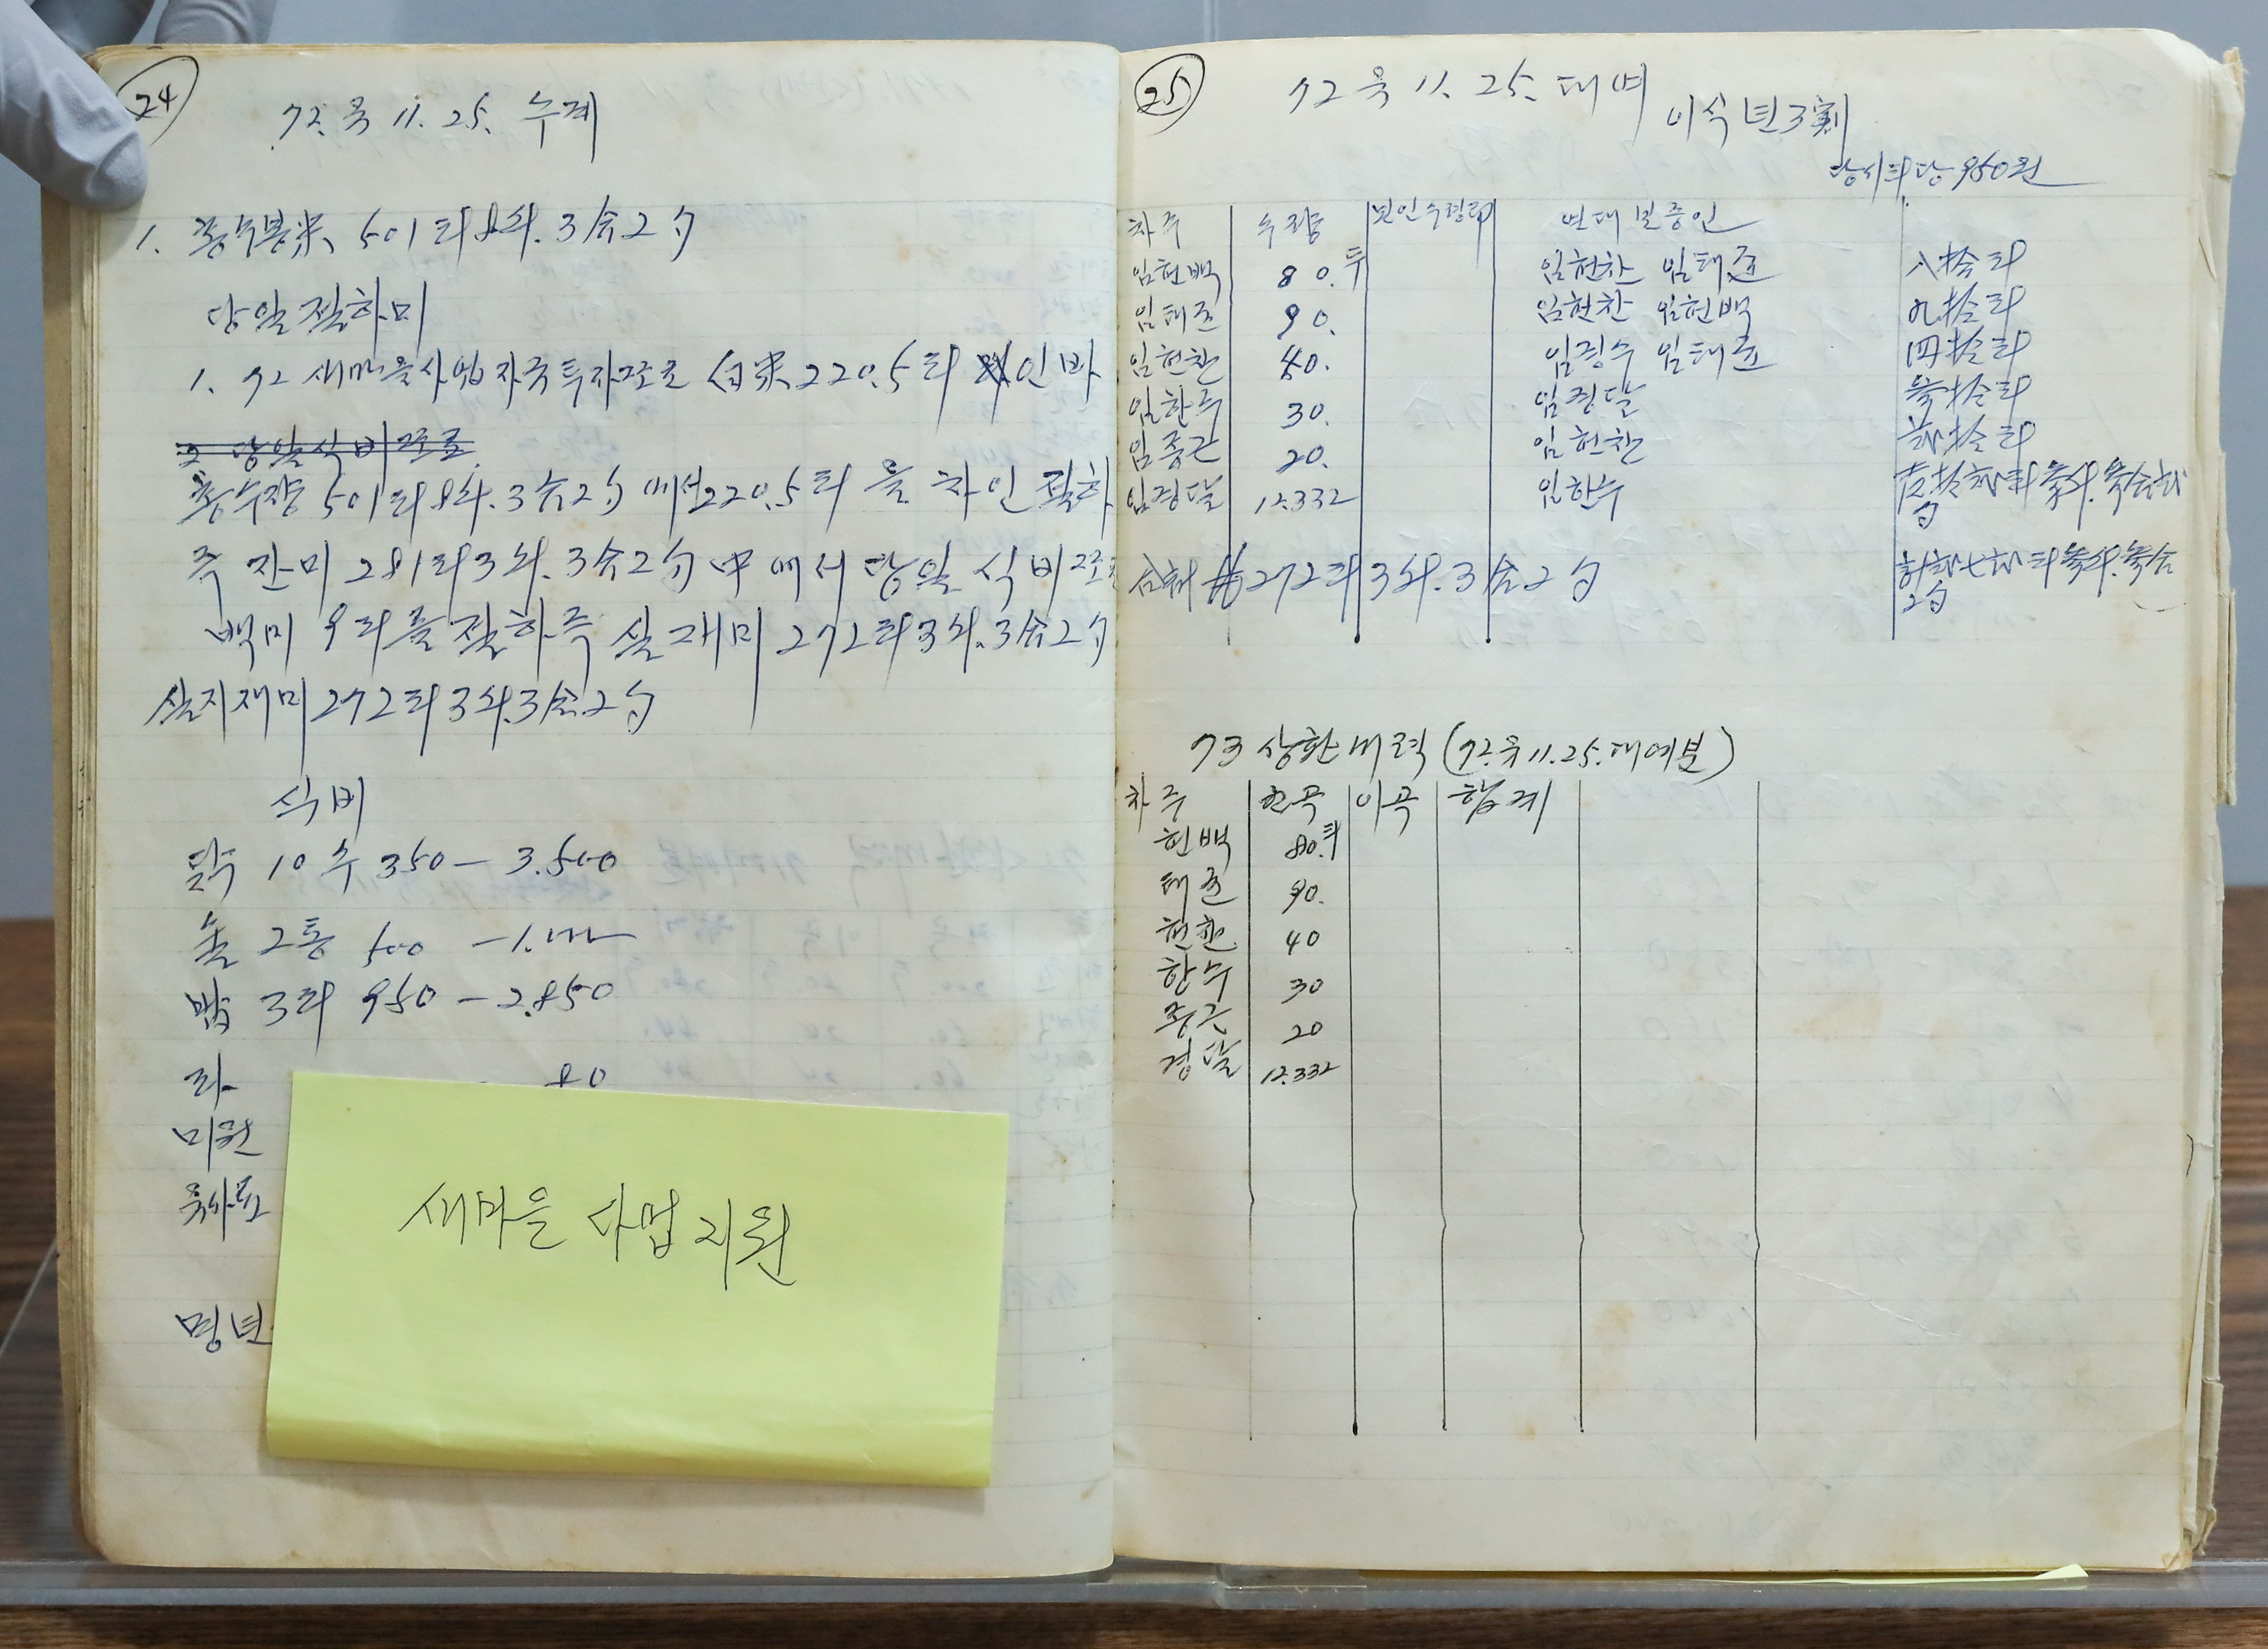 24
72. 음 11. 25. 수계
1. 총수봉米 501되8夕. 3合2勺
당일 절하미
1. 72 새마을사업자국투자조로 白米 220.5되 인바
2 당일 식비조로
총수장 501되8夕. 3合2勺 에서 220.5되 를 차인 절하
즉 잔미 281되3夕. 3合2勺 中에서 당일 식비조로
백미 9되를 절하즉 실재미 272되3夕. 3合2勺
실지재미 272되3夕. 3合2勺
식비
닭수 10수 350 - 3.500
술 2통 500 - 1.000
밥 3되 950 - 2.850
80
미원
명년
새마을 사업 지원
25
72 음 11. 25. 대여 이식 년3割
당시되당 950원
차주 수량 본인수령印 연대보증인
임헌백 80.두 임헌찬 임태준 八拾되
임태준 90. 임헌찬 임헌백 九拾되
임헌찬 40. 임경수 임태준 四拾되
임한수 30. 임경달 參拾되
임종근 20. 임헌찬 貳拾되
임경달 12.332 임한수
합계 272되3夕. 3合.2勺
73 상환내력 (72.음11.25.대여분)
차주 원곡 이곡 합계
헌백 80.되
태준 90.
헌찬 40
한수 30
종근 20
경달 12.332